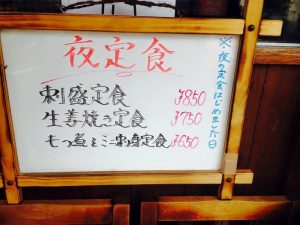 夜定食
刺盛定食 ¥850
生姜焼き定食 ¥750
もつ煮とミニ刺身定食 ¥650
※夜の定食はじめました